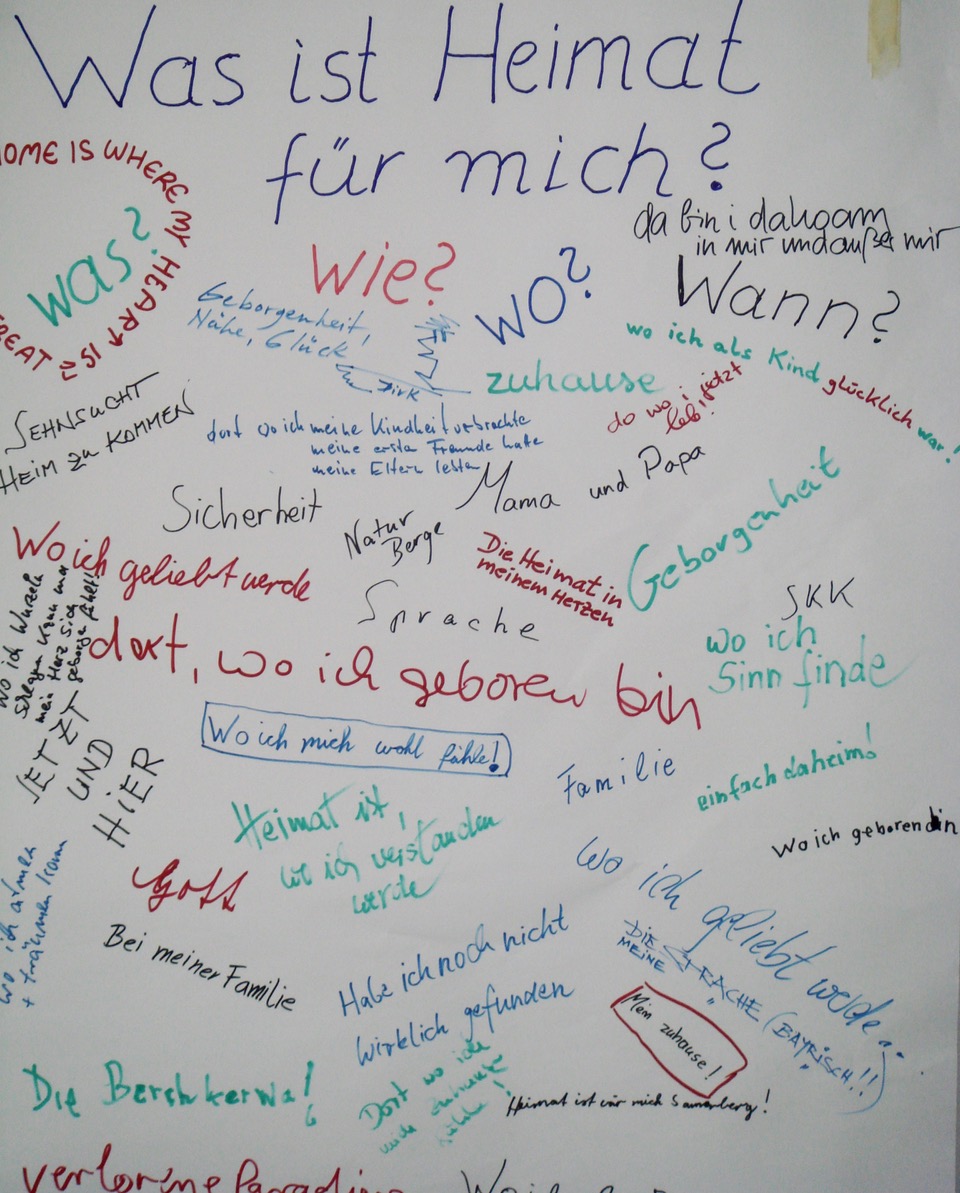 Was ist Heimat
für mich?
HOME IS WHERE MY HEART IS
was?
Wie?
WO?
da bin i dahoam
in mir und außer mir
Wann?
Geborgenheit,
Nähe, Glück
zuhause
wo ich als Kind glücklich war!
do wo i jetzt
leb!
SEHNSUCHT
HEIM zu KOMMEN
dort wo ich meine Kindheit verbrachte
meine ersten Freunde hatte
meine Eltern lebten
Mama und Papa
Sicherheit
Natur
Berge
Geborgenheit
Wo ich geliebt werde
Die Heimat in
meinem Herzen
Sprache
SKK
wo ich Wurzeln
schlagen kann und
mein Herz sich
geborgen fühlt!
dort, wo ich geboren bin
wo ich
Sinn finde
JETZT
UND
HIER
Wo ich mich wohl fühle!
Familie
einfach daheim!
Heimat ist,
wo ich verstanden
werde
Wo ich geboren bin
Gott
wo ich geliebt werde..
wo ich atmen
+ träumen kann
Bei meiner Familie
Habe ich noch nicht
wirklich gefunden
DIE
MEINE SPRACHE (BAYRISCH!!)
Mein zuhause!
Die
Dort wo ich
mich zuhause
fühle!
Heimat ist für mich Samerberg!
verlorene